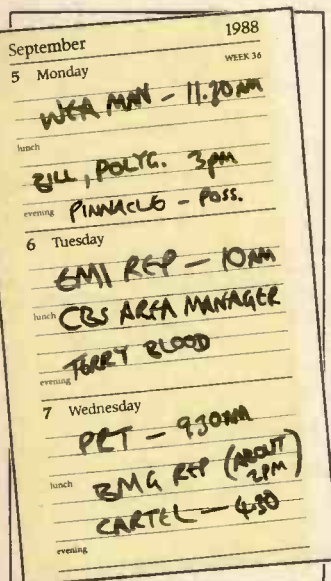 September 1988
5 Monday WEEK 36
WEA MAN - 11.30AM
lunch
BILL, POLYG. 3pm
evening PINNACLE - POSS.
6 Tuesday
EMI REP - 10AM
lunch CBS AREA MANAGER
TERRY BLOOD
evening
7 Wednesday
PRT - 9.30AM
lunch BMG REP (ABOUT 2PM)
CARTEL - 4.30
evening